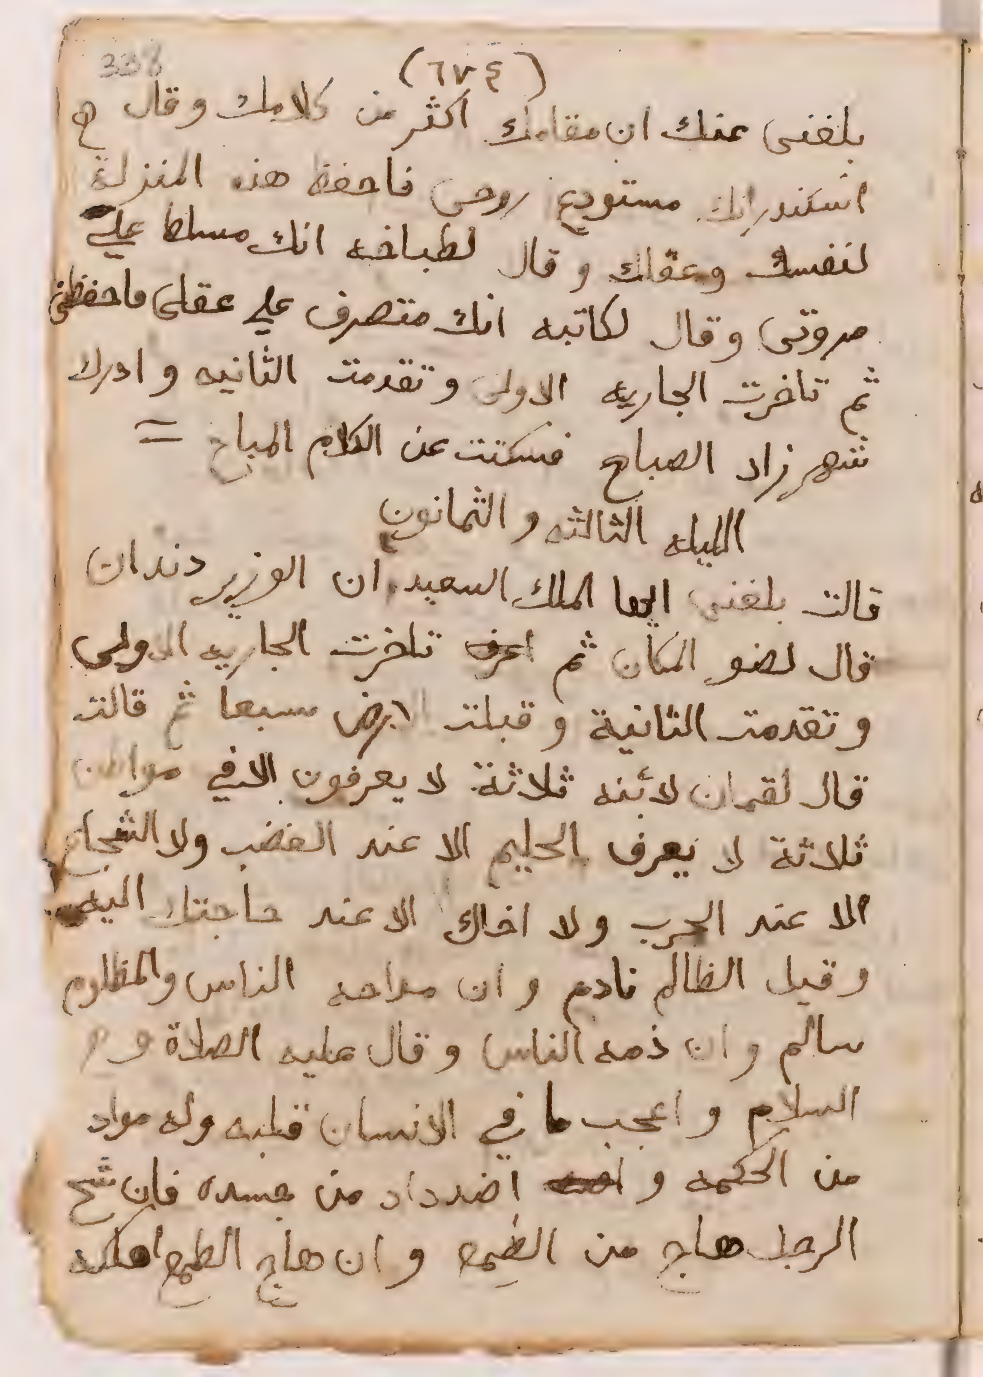 338
(٦٧٤)
بلغنى عنك ان مقامك اكثر من كلامك وقال ح
اسكندر انك مستودع روحى فاحفظ هذه المنزلة
لنفسك وعقلك وقال لطباخه انك مسلط على
مروتى وقال لكاتبه انك متصرف على عقلى فاحفظنى
ثم تاخرت الجاريه الاولى وتقدمت الثانيه وادرك
شهرزاد الصباح فسكتت عن الكلام المباح =
الليله الثالثه والثمانون
قالت بلغنى ايها الملك السعيد ان الوزير دندان
قال لضو المكان ثم تاخرت الجاريه الاولى
وتقدمت الثانية وقبلت الارض سبعا ثم قالت
قال لقمان لابنه ثلاثة لا يعرفون الا في مواطن
ثلاثة لا يعرف الحليم الا عند الغضب ولا الشجاع
الا عند الحرب ولا اخاك الا عند حاجتك اليه
وقيل الظالم نادم وان مداحه الناس والمظلوم
سالم وان ذمه الناس وقال عليه الصلاة و
السلام واعجب ما في الانسان قلبه وله مواد
من الحكمه و اضداد من جسده فان شح
الرجل هاج من الطمع وان هاج الطمع اهلكه